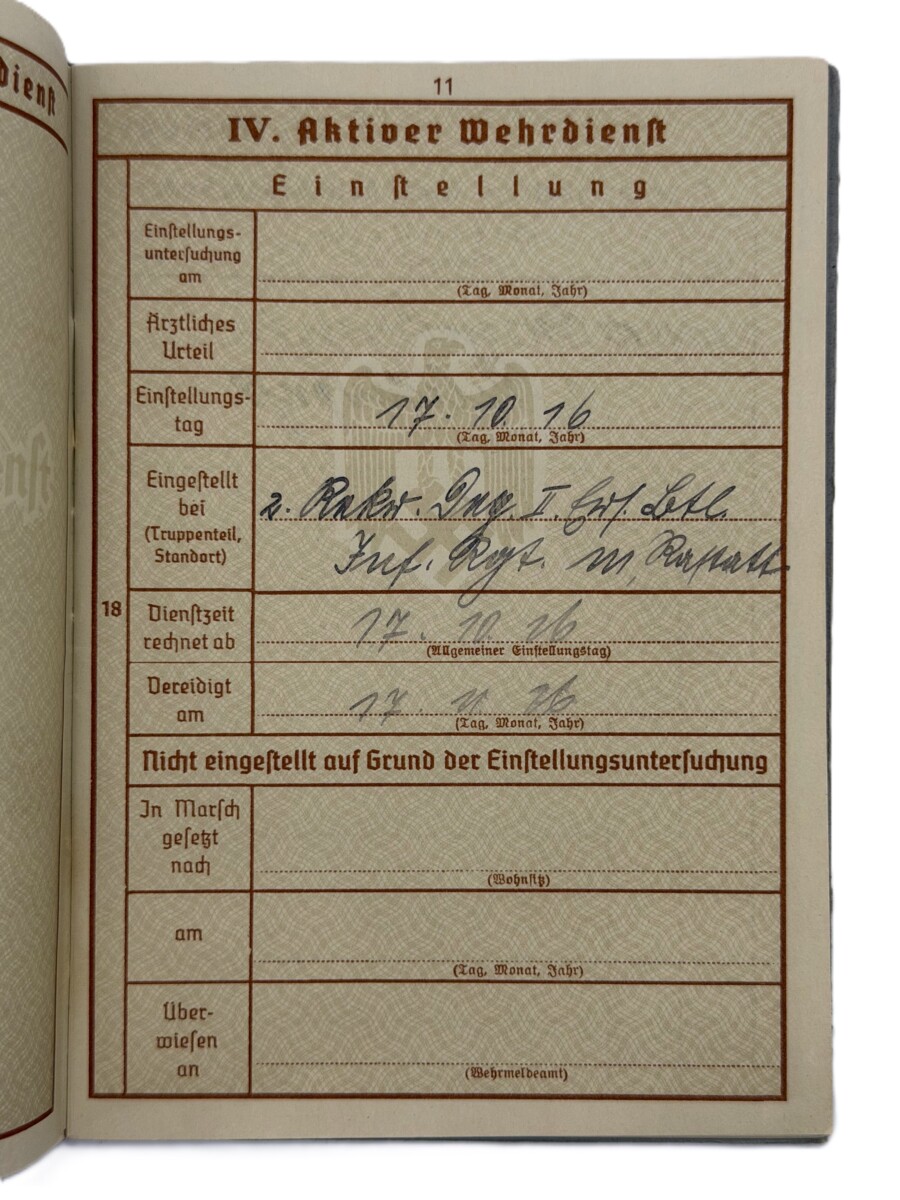 dienst
11
IV. Aktiver Wehrdienst
Einstellung
Einstellungs-
untersuchung
am
(Tag, Monat, Jahr)
Ärztliches
Urteil
Einstellungs-
tag
17. 10. 16
(Tag, Monat, Jahr)
Eingestellt
bei
(Truppenteil,
Standort)
2. Rekr. II. Ers. Btl.
Inf. Rgt. Rastatt
18
Dienstzeit
rechnet ab
17. 10. 16
(Allgemeiner Einstellungstag)
Vereidigt
am
17.
(Tag, Monat, Jahr)
Nicht eingestellt auf Grund der Einstellungsuntersuchung
In Marsch
gesetzt
nach
(Wohnsitz)
am
(Tag, Monat, Jahr)
Über-
wiesen
an
(Wehrmeldeamt)